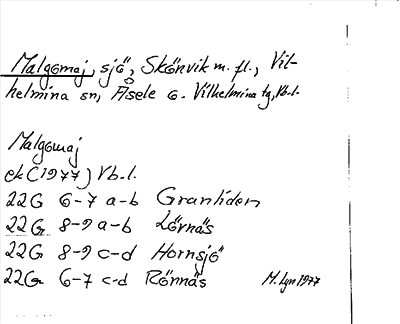 Malgomaj, sjö, Skönvik m. fl., Vil-
helmina sn, Åsele o. Vilhelmina tg, Vb.l.
Malgomaj
ek (1977) Vb.l.
22G 6-7 a-b Granliden
22G 8-9 a-b Lövnäs
22G 8-9 c-d Hornsjö
22G 6-7 c-d Rönnäs M. Lgn 1977